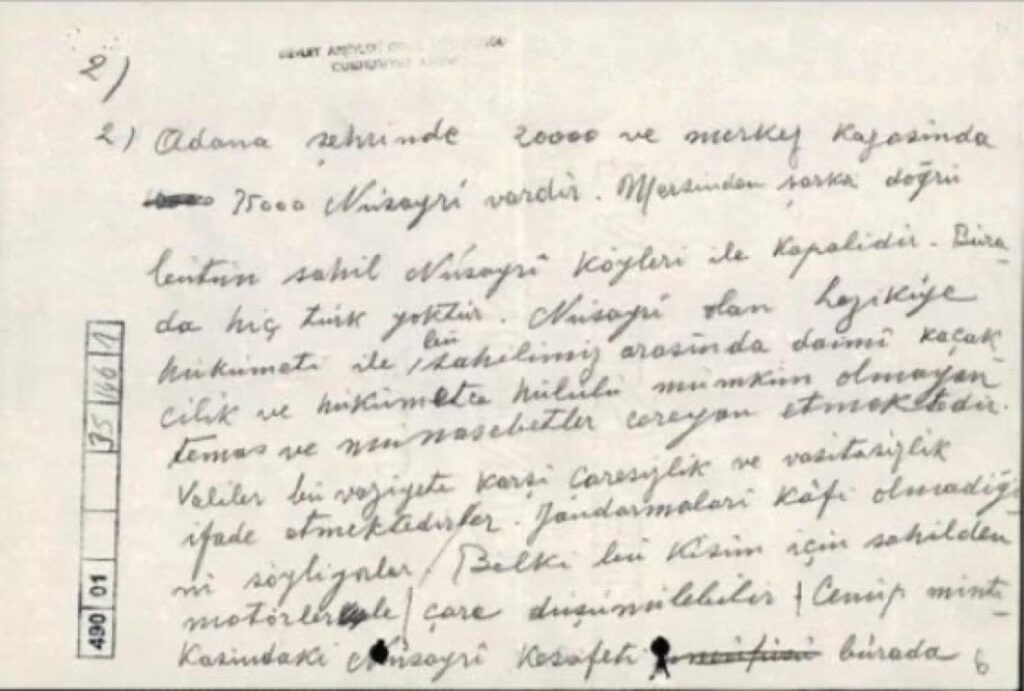 2)
DEVLET ARŞİVLERİ
CUMHURİYET
2) Adana şehrinde 20000 ve merkez kazasinda
75000 Nüsayrî vardir. Mersinden şarka doğrü
bütün sahil Nüsayrî köyleri ile kapalidir. Büra-
da hiç türk yoktür. Nüsayrî olan Lazikiye
hükümeti ile bü sahilimiz arasinda daimî kaçak-
çilik ve hükümetce hülülü mümkün olmayan
temas ve münasebetler cereyan etmektedir.
Valiler bü vaziyete karşi çaresizlik ve vasitasizlik
ifade etmektedirler. Jandarmalari kâfi olmadiği-
ni söyliyorlar / Belki bü kisim için sahilden
motörlerle / çare düşünülebilir / Cenüp minta-
kasindaki Nüsayrî kesafeti bürada 6
490 01
35 146 1